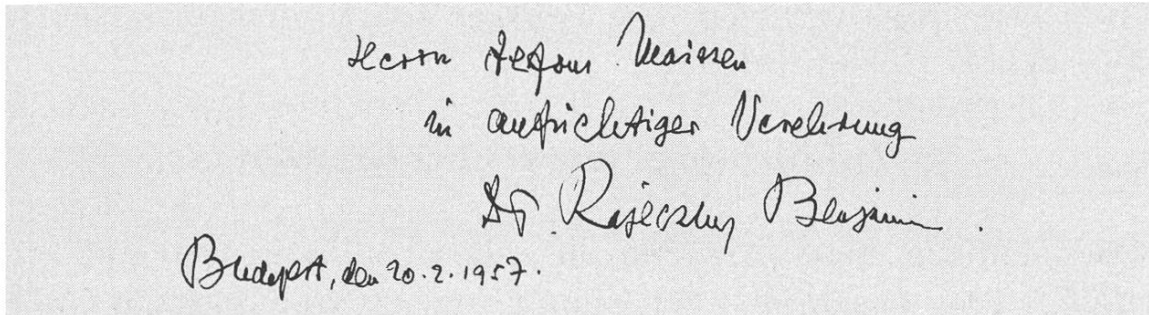 Herrn Alfons Maissen
in aufrichtiger Verehrung
Dr. Rajeczky Benjamin.
Budapest, den 20.2.1957.